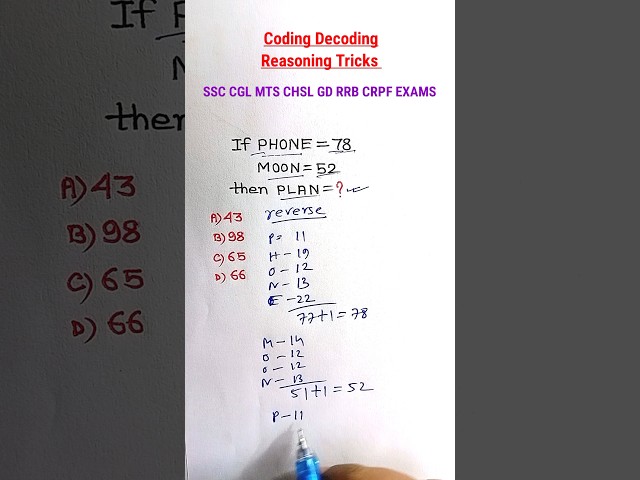 Coding Decoding
Reasoning Tricks
SSC CGL MTS CHSL GD RRB CRPF EXAMS
If PHONE = 78
MOON = 52
then PLAN = ?
A) 43
B) 98
C) 65
D) 66
reverse
P = 11
H - 19
O - 12
N - 13
E - 22
77 + 1 = 78
M - 14
O - 12
O - 12
N - 13
51 + 1 = 52
P - 11
If P
then
A) 43
B) 98
C) 65
D) 66